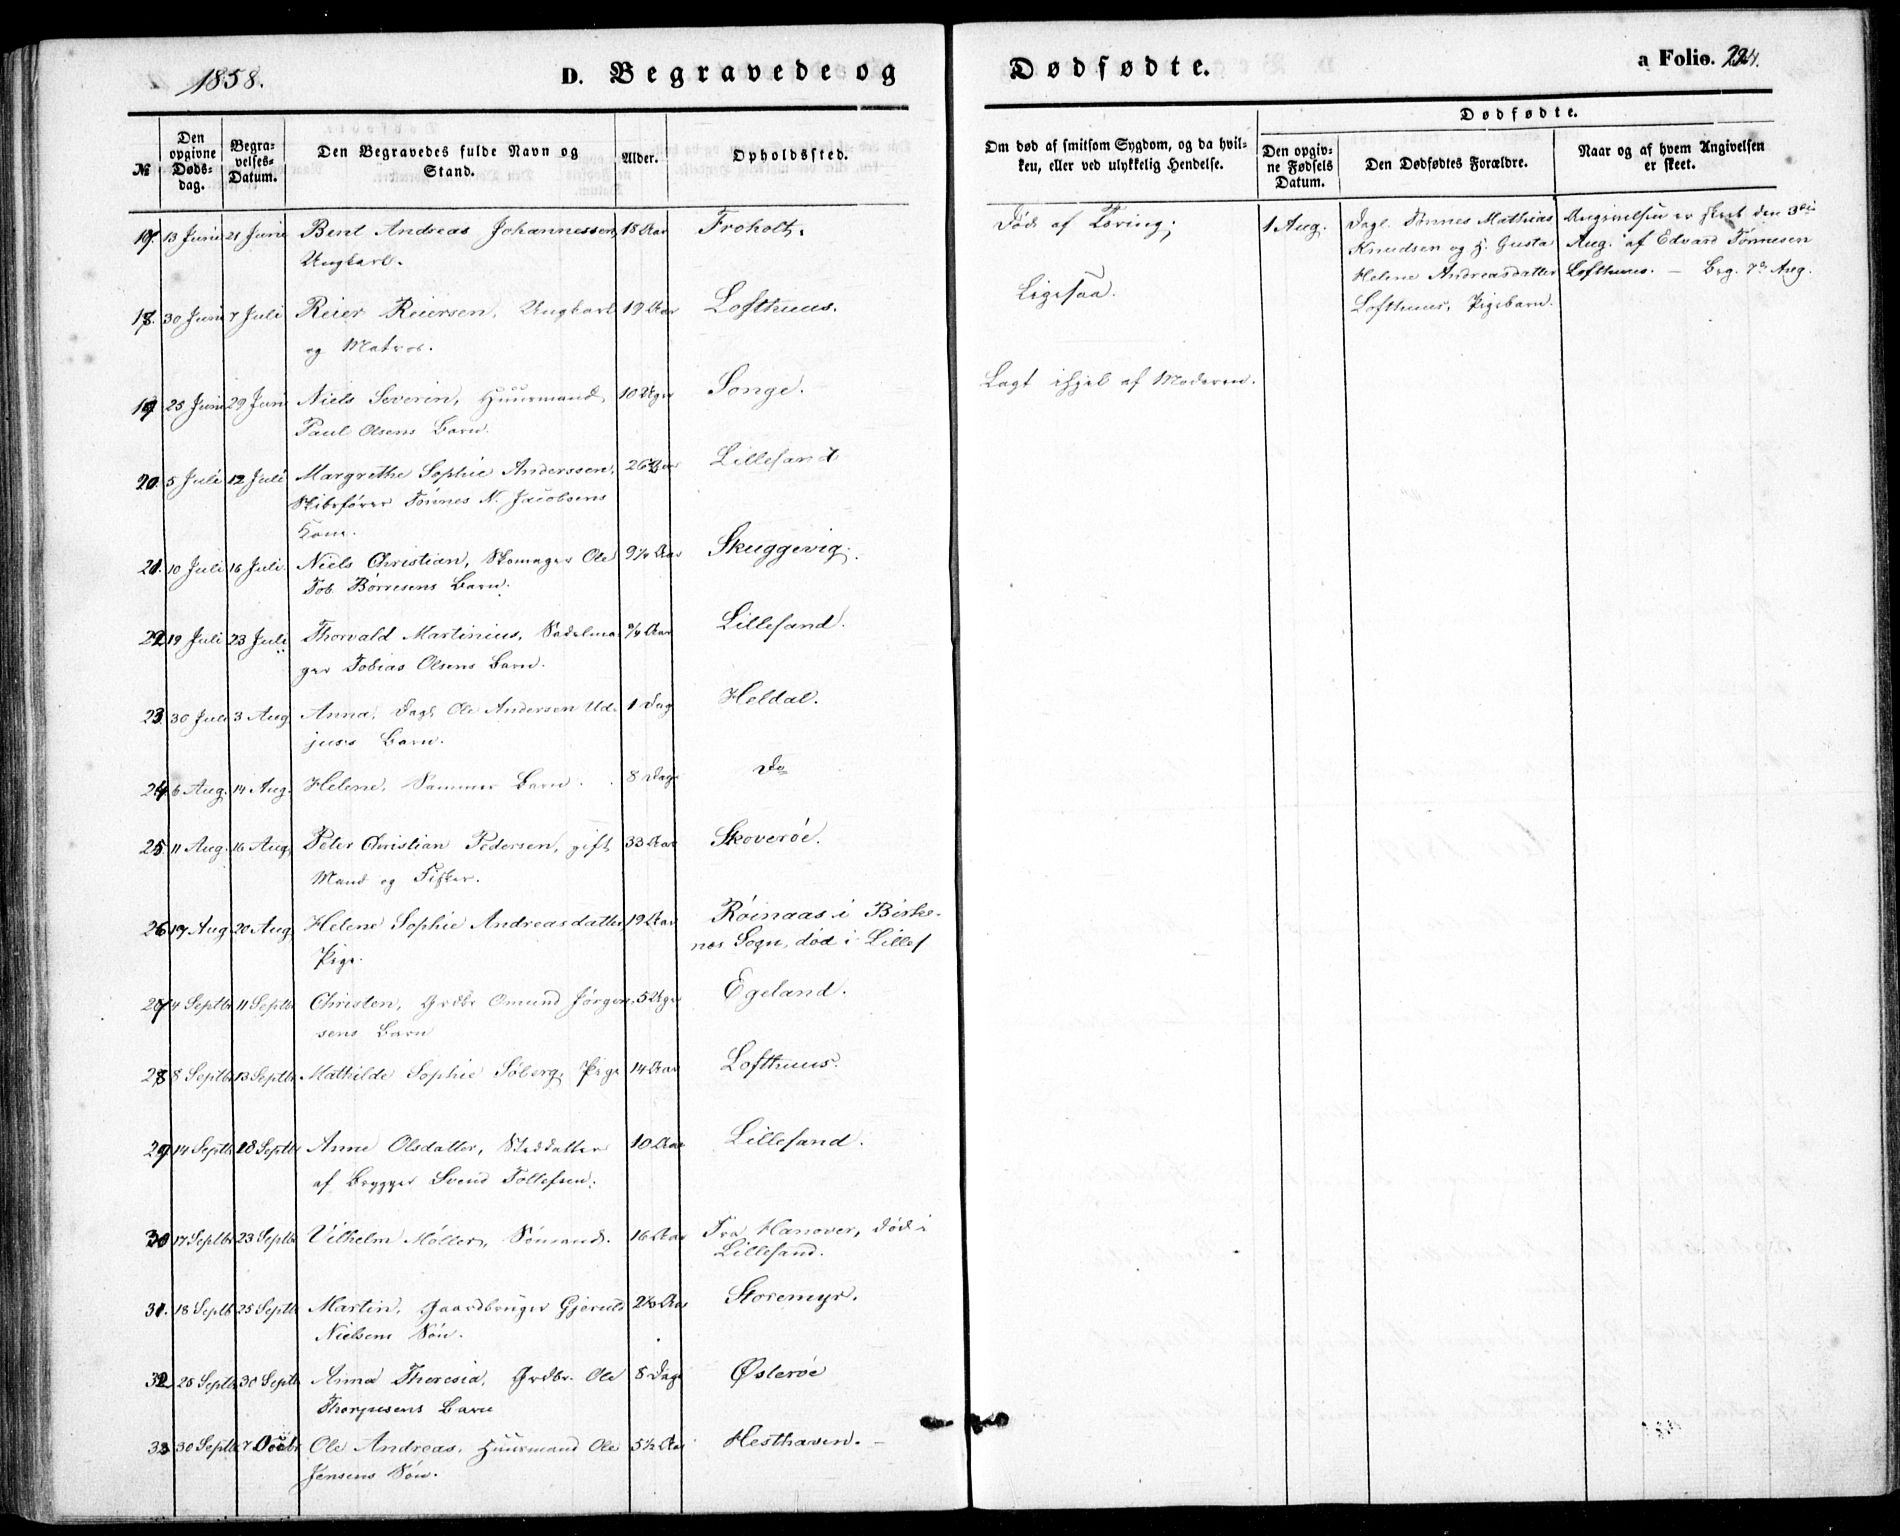 1858.
D. Begravede og
Dødfødte.
a Folio. 224.
№
Den opgivne Døds-dag.
Begra-velses-Datum.
Den Begravedes fulde Navn og Stand.
Alder.
Opholdssted.
Om død af smitsom Sygdom, og da hvil-
ken, eller ved ulykkelig Hendelse.
Dødfødte.
Den opgiv-ne Fødsels Datum.
Den Dødfødtes Forældre.
Naar og af hvem Angivelsen er skeet.
17. 13 Juni 21 Juni Bent Andreas Johannessen, 18 Aar Froholt. Død af Tæring;
Ungkarl.
18. 30 Juni 7 Juli Reier Reiersen, Ungkarl 19 Aar Lofthuus. Ligesaa.
og Matros.
19 25 Juni 29 Juni Niels Severin, Huusmand 10 Uger Songe. Lagt ihjel af Moderen.
Paul Olsens Barn.
20. 5 Juli 12 Juli Margrethe Sophie Anderssen, 26 Aar Lillesand
Skibsfører Tønnes N. Jacobsens
Kone.
21. 10 Juli 16 Juli. Niels Christian, Skomager Ole Aar Skuggevig.
Tob. Børresens Barn.
22 19 Juli 23 Juli Thorvald Martinius, Sadelma- ¾ Aar Lillesand.
ger Tobias Olsens Barn.
23 30 Juli 3 Aug. Anna, Dagl. Ole Andersen Ud- 1 Dag Heldal.
juss Barn.
24 6 Aug. 14 Aug. Helene, Sammes Barn. 8 Dage Do
25 11 Aug. 16 Aug. Peter Christian Pedersen, gift 33 Aar Skoverøe.
Mand og Fisker.
26 17 Aug. 20 Aug. Helene Sophie Andreasdatter 19 Aar Røinaas i Birke-
Pige. nes Sogn, død i Lilles
27 4 Septbr 11 Septbr Christen, Grdbr Omund Jørgen- 5 Uger Egeland.
sens Barn
28 8 Septbr 13 Septbr Mathilde Sophie Söberg, Pige 14 Aar Lofthuus.
29 14 Septbr 18 Septbr Anne Olsdatter, Steddatter 10 Aar Lillesand.
af Brygger Svend Tollefsen.
30 17 Septbr 23 Septbr Vilhelm Møller, Sømand. 16 Aar Fra Hanover, død i
Lillesand.
31. 18 Septb 25 Septb Martin, Gaardbruger Gjeruld Aar Storemyr.
Nielsens Søn.
32 25 Septb 30 Septb Anna Theresia, Grdbr. Ole 8 Dage Østerøe
Thorjusens Barn
33 30 Septb 7 Octbr Ole Andreas, Huusmand Ole 5½ Aar Hesthaven. –
Jensens Søn.
1 Aug. Dagl. Tönnes Mathias
Knudsen og H. Gusta
Helene Andreasdatter
Lofthuus, Pigebarn.
Angivelsen er skeet den 3die
Aug. af Edvard Tønnesen
Lofthuus. – Beg. 7de Aug.